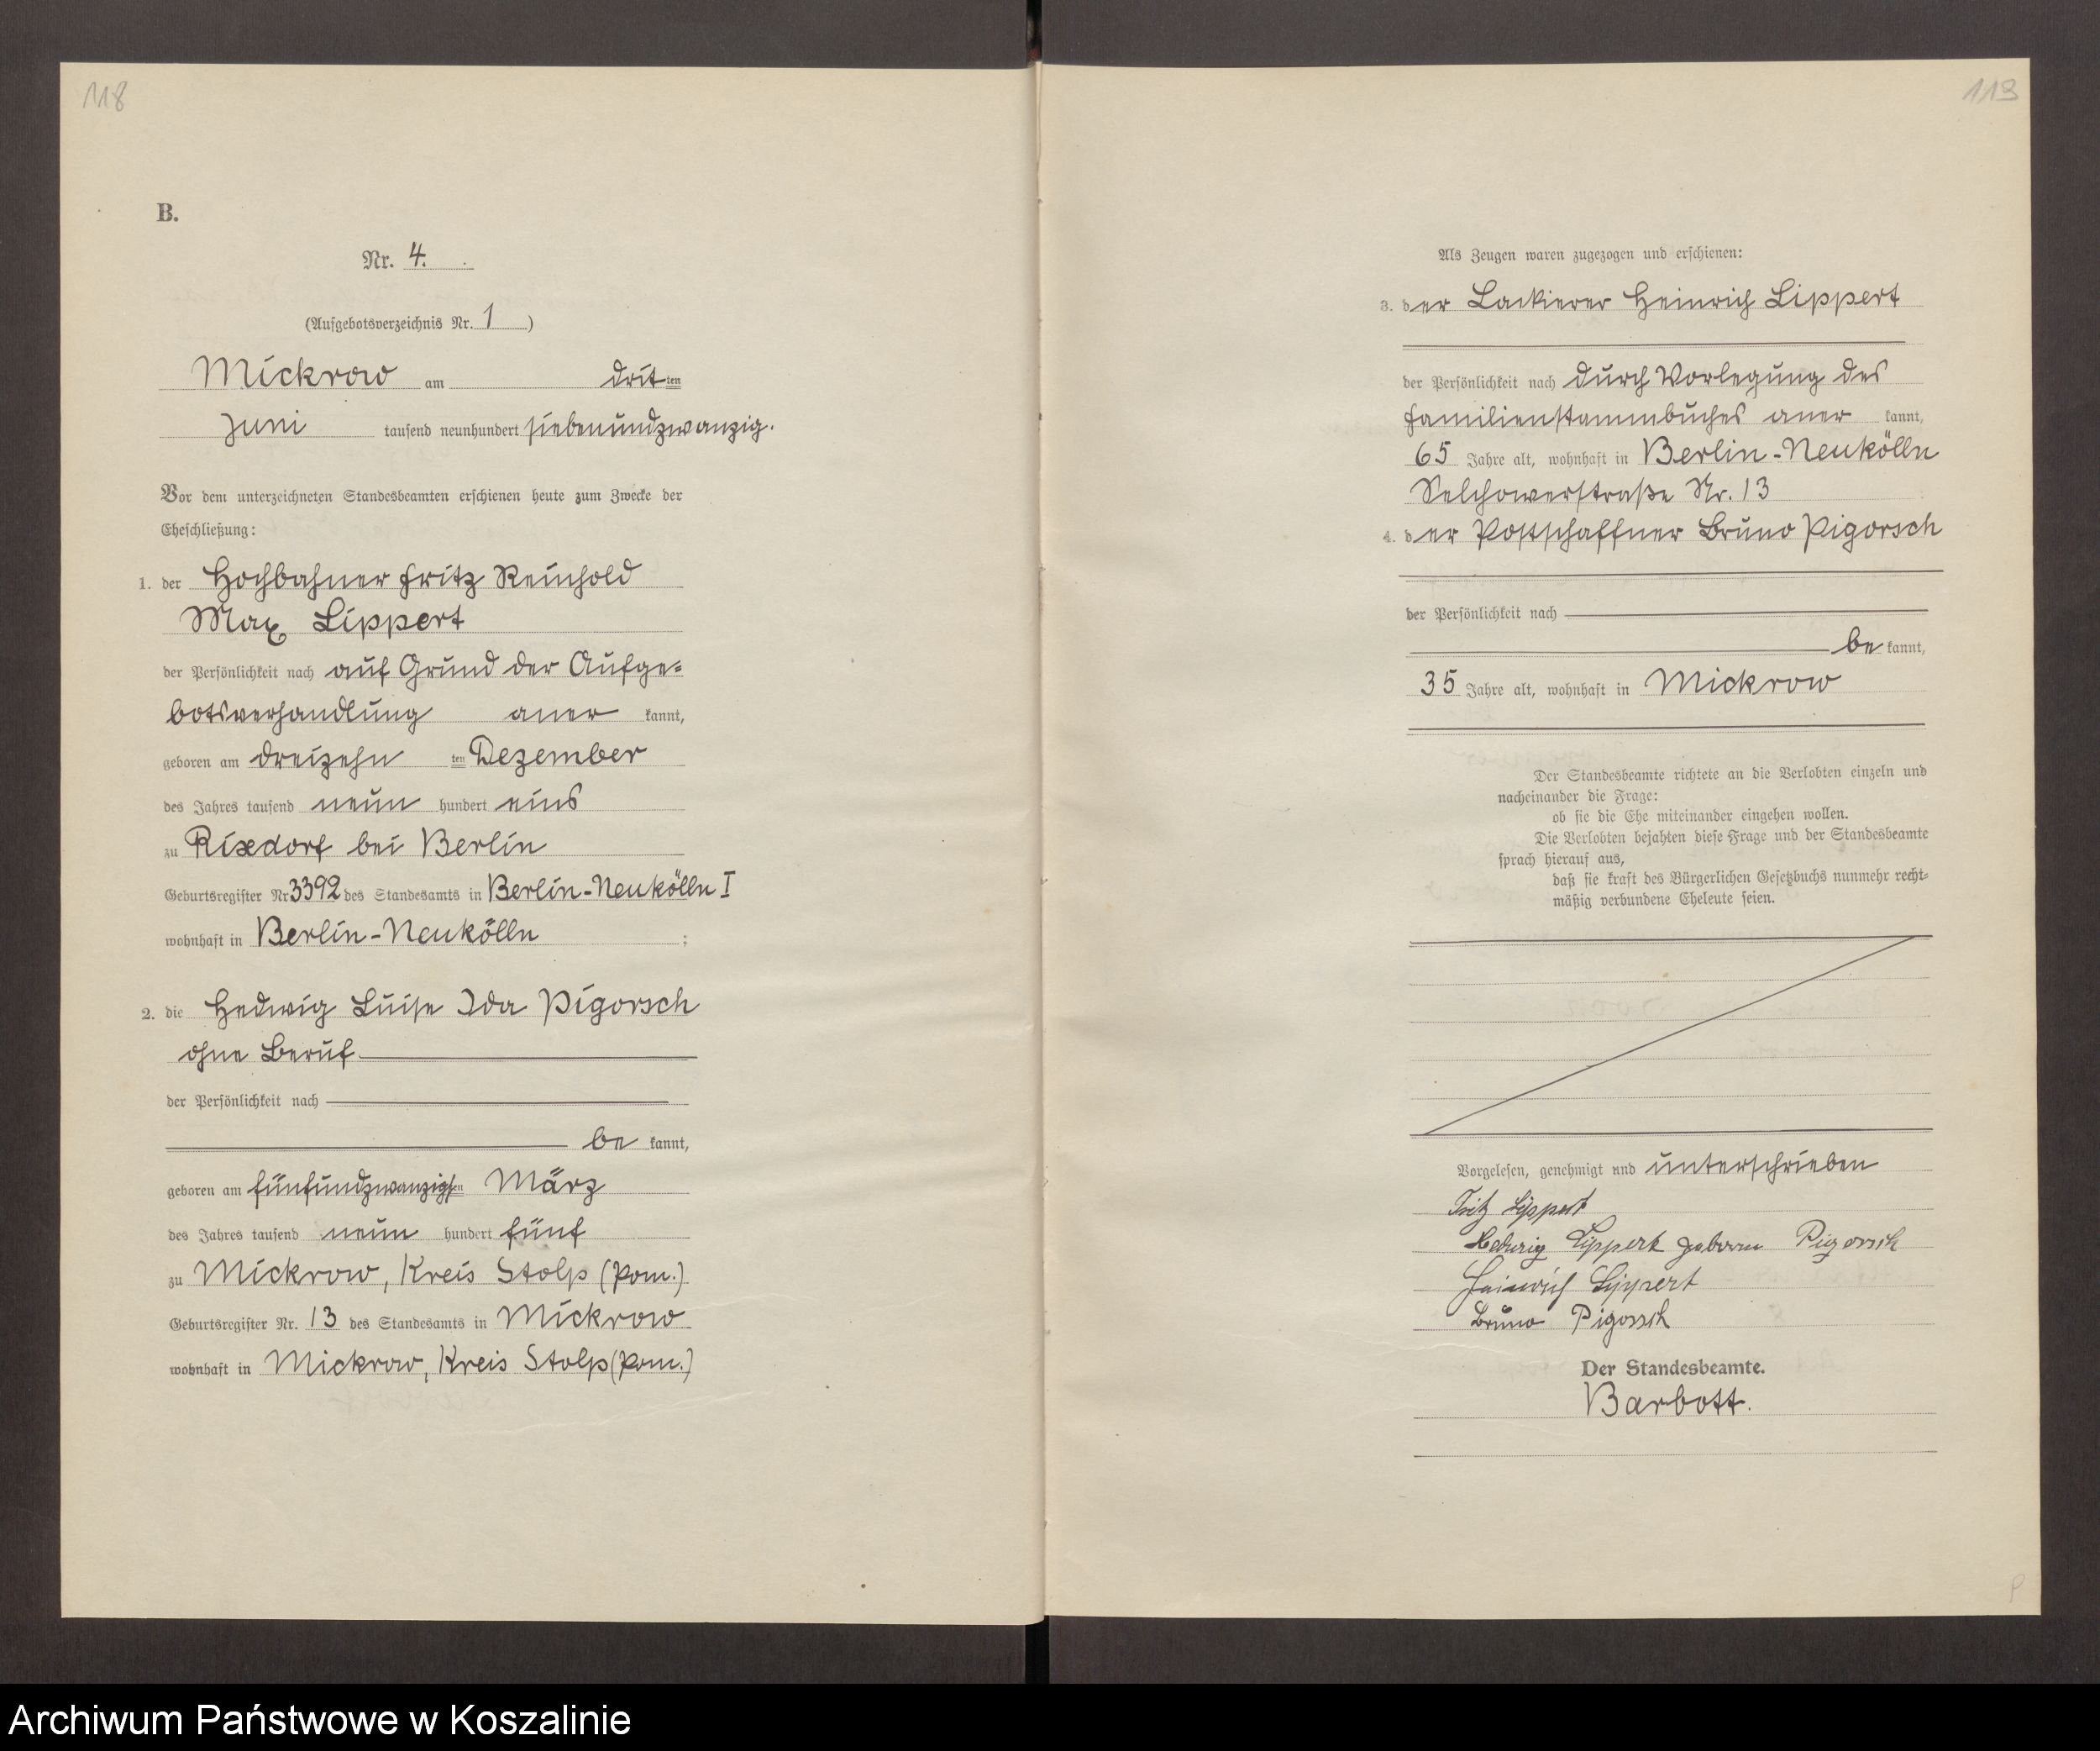 118
B.
Nr. 4.
(Aufgebotsverzeichnis Nr. 1)
Mickrow am dritten
Juni tausend neunhundert siebenundzwanzig.
Vor dem unterzeichneten Standesbeamten erschienen heute zum Zwecke der
Eheschließung:
1. der Hochbahner Fritz Reinhold
Max Lippert
der Persönlichkeit nach auf Grund der Aufge=
botsverhandlung aner kannt,
geboren am dreizehn ten Dezember
des Jahres tausend neun hundert eins
zu Rixdorf bei Berlin
Geburtsregister Nr 3392 des Standesamts in Berlin-Neukölln I
wohnhaft in Berlin-Neukölln ;
2. die Hedwig Luise Ida Pigorsch
ohne Beruf
der Persönlichkeit nach
be kannt,
geboren am fünfundzwanzigsten März
des Jahres tausend neun hundert fünf
zu Mickrow, Kreis Stolp (Pom.)
Geburtsregister Nr. 13 des Standesamts in Mickrow
wohnhaft in Mickrow, Kreis Stolp (Pom.)
119
Als Zeugen waren zugezogen und erschienen:
3. der Lackierer Heinrich Lippert
der Persönlichkeit nach durch Vorlegung des
Familienstammbuches aner kannt,
65 Jahre alt, wohnhaft in Berlin-Neukölln
Selchowerstraße Nr. 13
4. der Postschaffner Bruno Pigorsch
der Persönlichkeit nach
be kannt,
35 Jahre alt, wohnhaft in Mickrow
Der Standesbeamte richtete an die Verlobten einzeln und
nacheinander die Frage:
ob sie die Ehe miteinander eingehen wollen.
Die Verlobten bejahten diese Frage und der Standesbeamte
sprach hierauf aus,
daß sie kraft des Bürgerlichen Gesetzbuchs nunmehr recht=
mäßig verbundene Eheleute seien.
Vorgelesen, genehmigt und unterschrieben
Fritz Lippert
Hedwig Lippert geboren Pigorsch
Heinrich Lippert
Bruno Pigorsch
Der Standesbeamte.
Barbott.
Archiwum Państwowe w Koszalinie